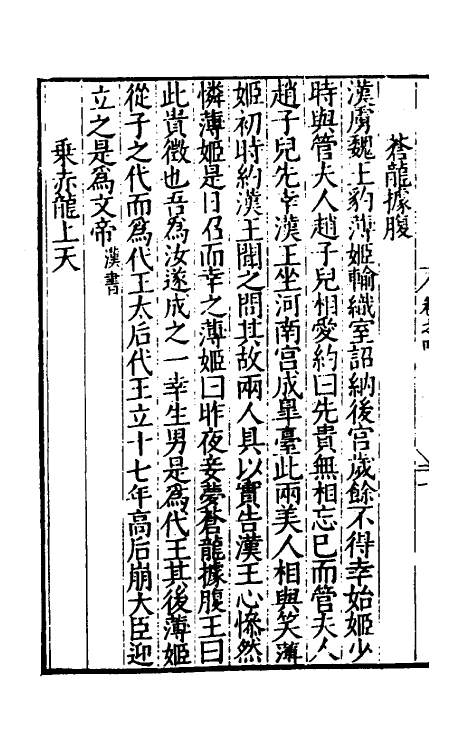 蒼龍據腹
漢虜魏王豹薄姬輸織室詔納後宮歲餘不得幸始姬少
時與管夫人趙子兒相愛約曰先貴無相忘已而管夫人
趙子兒先幸漢王坐河南宮成皐臺此兩美人相與笑薄
姬初時約漢王聞之問其故兩人具以實告漢王心慘然
憐薄姬是日召而幸之薄姬曰昨夜妾夢蒼龍據腹王曰
此貴徵也吾為汝遂成之一幸生男是為代王其後薄姬
從子之代而為代王太后代王立十七年高后崩大臣迎
立之是為文帝漢書
乘赤龍上天